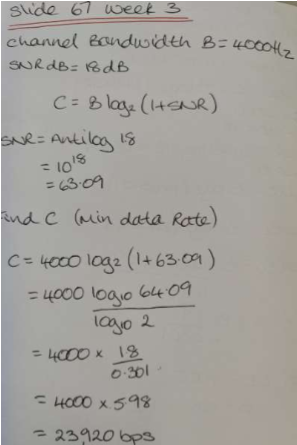 Slide 67 week 3
channel Bandwidth B = 4000Hz
SNR dB = 18 dB
C = B log₂ (1+SNR)
SNR = Antilog 18
= 10¹⁸
= 63.09
Find C (Min data Rate)
C = 4000 log₂ (1+63.09)
= 4000 log₁₀ 64.09
log₁₀ 2
= 4000 × 18
0.301
= 4000 × 598
= 23,920 bps